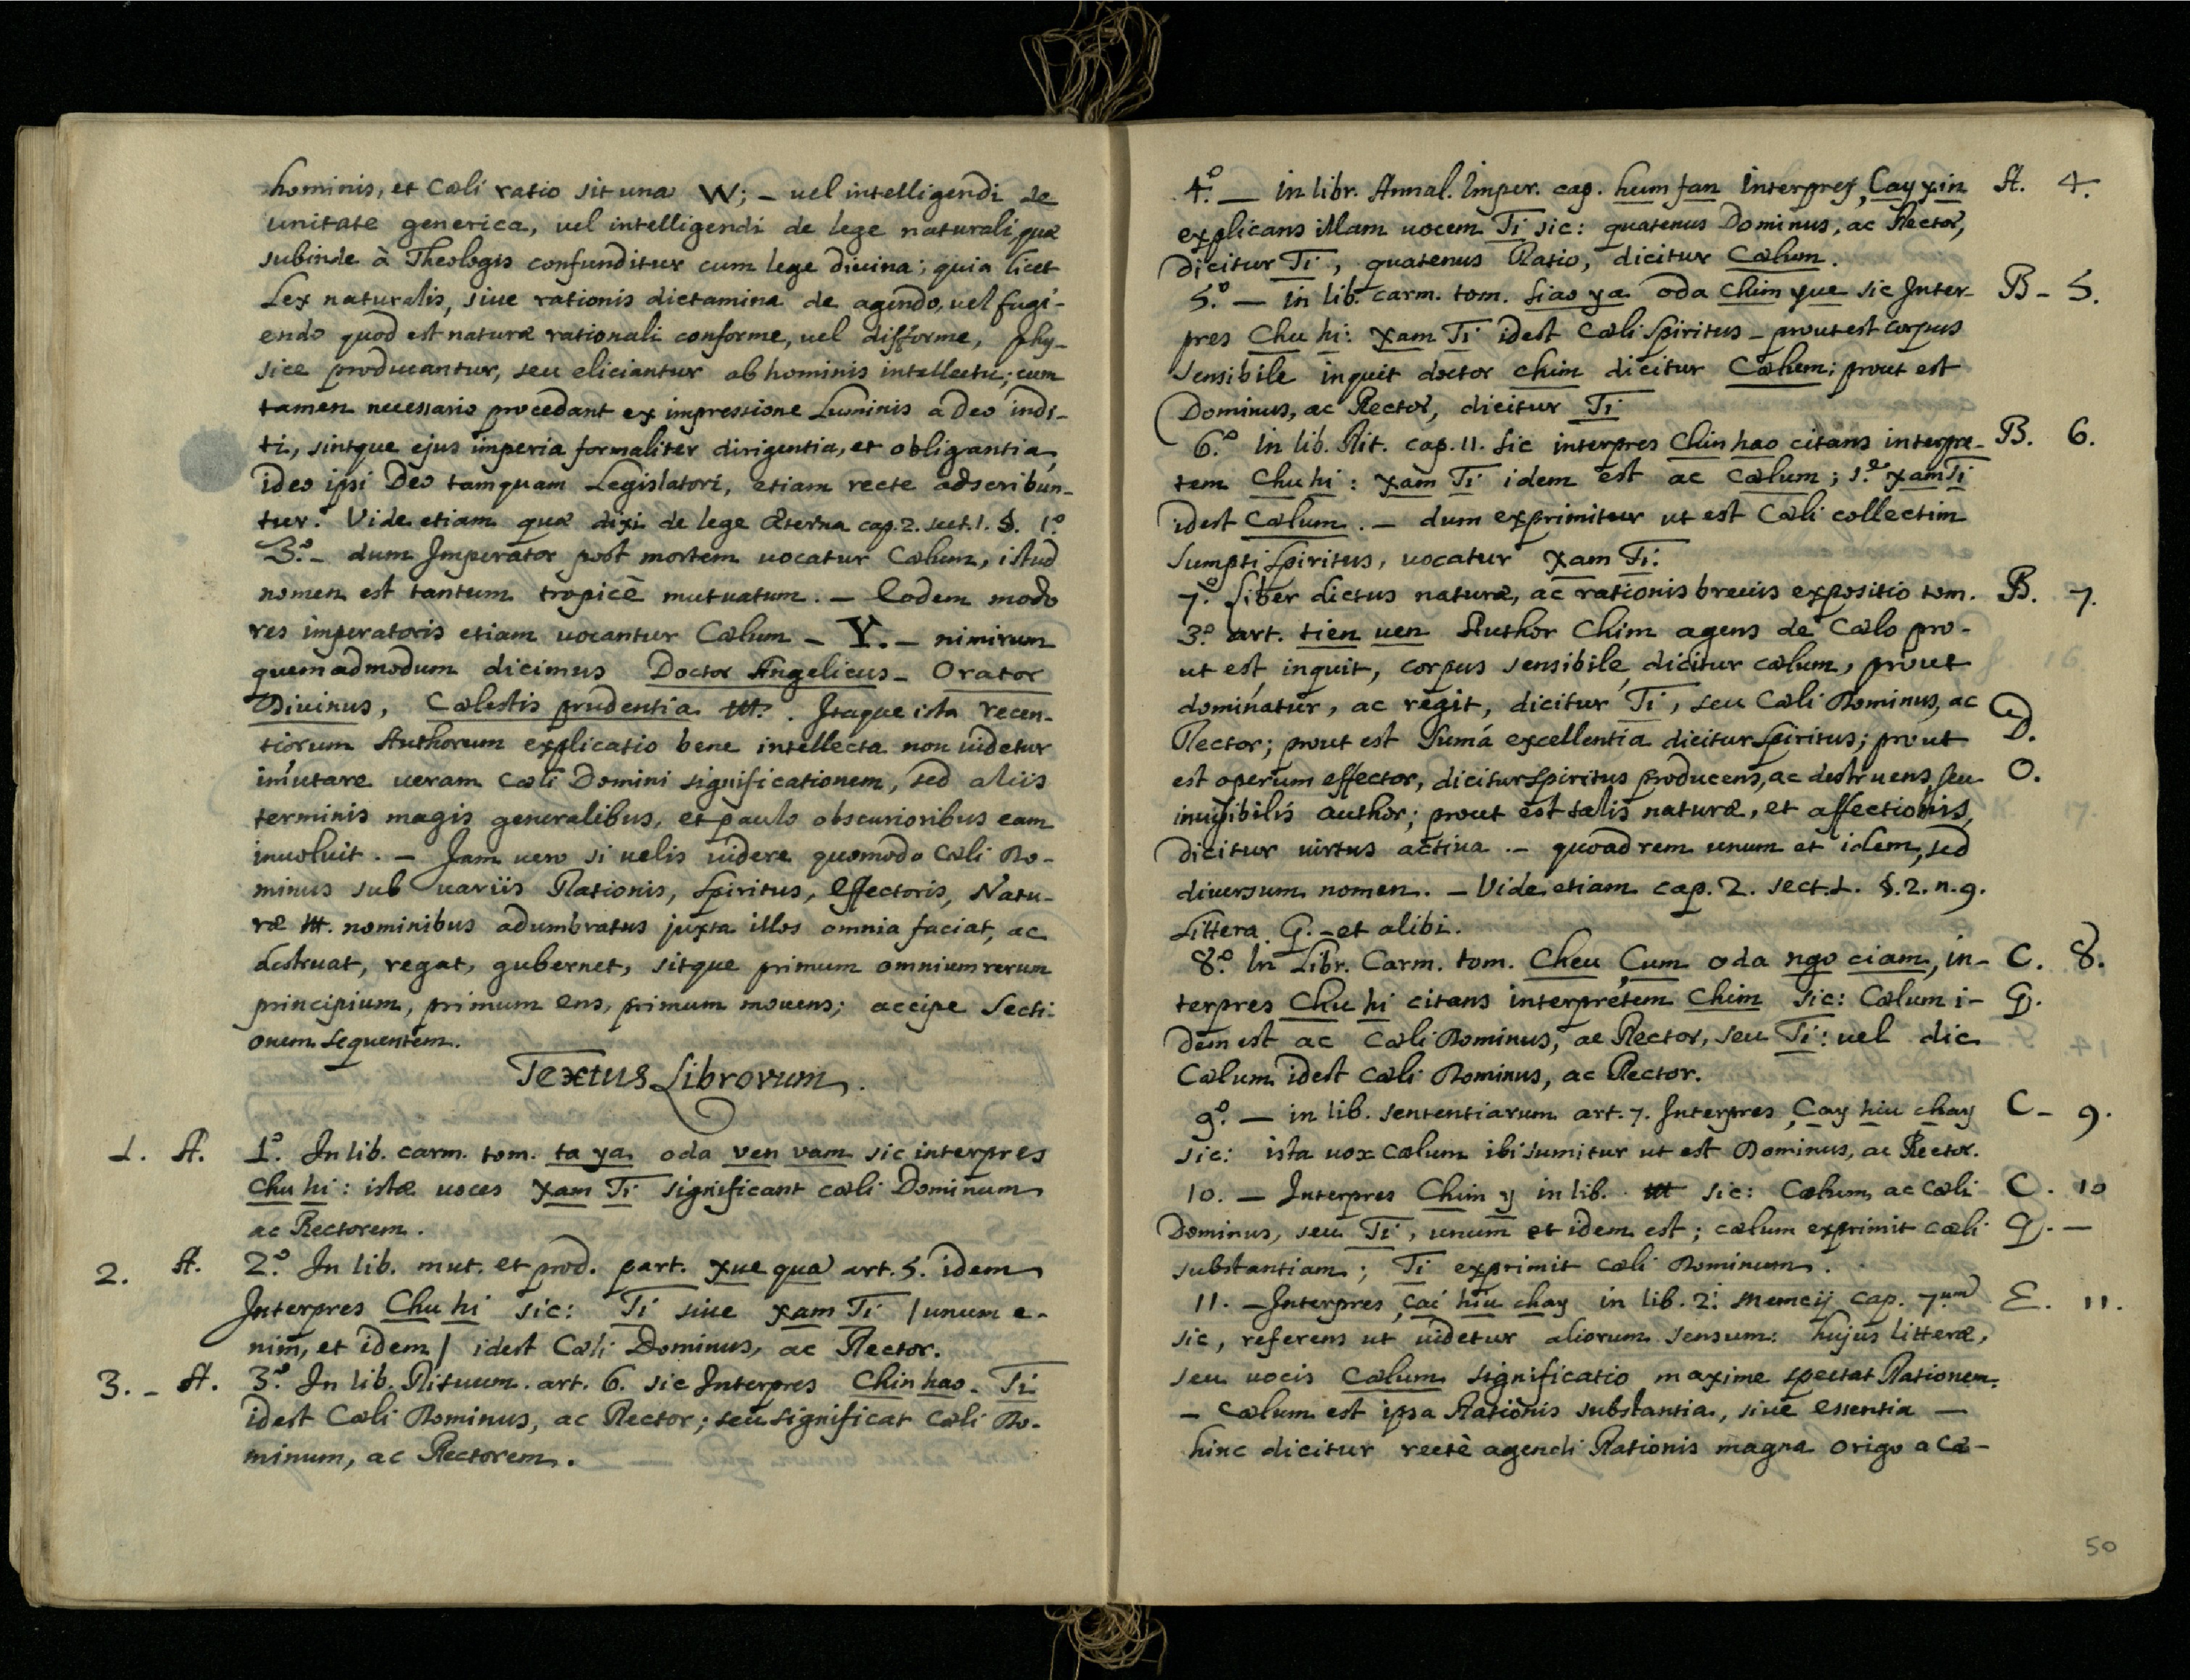 hominis, et Cœli ratio sit una W; – vel intelligendi de
unitate generica, vel intelligendi de lege naturali quæ
subinde à Theologis confunditur cum lege divina; quia licet
Lex naturalis, sive rationis dictamina de agendo, vel fugi-
endo quod est naturæ rationali conforme, vel difforme, phy-
sice producantur, seu eliciantur ab hominis intellectu; cum
tamen necessario procedant ex impressione Luminis a Deo indi-
ti, sintque ejus imperia formaliter dirigentia, et obligantia,
ideo ipsi Deo tamquam Legislatori, etiam recte adscribun-
tur. Vide etiam quæ dixi de lege æterna cap. 2. sect. 1. §. 1.º
3.º – dum Imperator post mortem vocatur Cœlum, istud
nomen est tantum tropicè mutuatum. – Eodem modo
res imperatoris etiam vocantur Cœlum – Y. – nimirum
quemadmodum dicimus Doctor Angelicus – Orator
Divinus, Cœlestis prudentia ttt. Itaque ista recen-
tiorum Authorum explicatio bene intellecta non videtur
im̃utare veram cœli Domini significationem, sed aliis
terminis magis generalibus, et paulo obscurioribus eam
involvit. – Jam vero si velis videre quomodo Cœli Do-
minus sub variis Rationis, Spiritus, Effectoris, Natu-
ræ ttt. nominibus adumbratus juxta illos omnia faciat, ac
destruat, regat, gubernet, sitque primum omnium rerum
principium, primum ens, primum movens; accipe Secti-
onem sequentem.
Textus Librorum.
1. A. 1.º In lib. carm. tom. ta ya oda ven vam sic interpres
Chu hi: istæ voces Xam Ti significant cœli Dominum
ac Rectorem.
2. A. 2.º In lib. mut. et prod. part. xue qua art. 5. idem
Interpres Chu hi sic: Ti sive Xam Ti / unum e-
nim, et idem / idest Cœli Dominus, ac Rector.
3. – A. 3.º In lib. Rituum. art. 6. sic Interpres Chin hao. Ti
idest Cœli Dominus, ac Rector; seu significat Cœli Do-
minum, ac Rectorem.
4.º – in libr. Annal. Imper. cap. hum fan Interpres Çay xin A. 4.
explicans illam vocem Ti sic: quatenus Dominus, ac Rector,
dicitur Ti, quatenus Ratio, dicitur Cœlum.
5.º – in lib. carm. tom. siao ya oda chim yue sic Inter- B – 5.
pres Chu hi: Xam Ti idest Cœli Spiritus – prout est corpus
sensibile inquit doctor chim dicitur Cœlum; prout est
Dominus, ac Rector, dicitur Ti
6.º in lib. Rit. cap. 11. sic interpres Chin hao citans interpre- B. 6.
tem Chu hi: Xam Ti idem est ac cœlum; s.e Xam Ti
idest Cœlum. – dum exprimitur ut est Cœli collectim
sumpti Spiritus, vocatur Xam Ti.
7.º Liber dictus naturæ, ac rationis brevis expositio tom. B. 7.
3.º art. tien uen Author Chim agens de Cœlo pro-
ut est inquit, corpus sensibile, dicitur cœlum, prout
dominatur, ac regit, dicitur Ti, seu Cœli Dominus, ac
Rector; prout est Sum̃a excellentia dicitur Spiritus; prout D.
est operum effector, dicitur Spiritus producens, ac destruens, seu O.
invisibilis author; prout est talis naturæ, et affectionis,
dicitur virtus activa. – quoad rem unum et idem, sed
diversum nomen. – Vide etiam cap. 2. sect. 1. §. 2. n. 9.
Littera G. – et alibi.
8.º In Libr. Carm. tom. Cheu Çum oda ngo ciam, in- C. 8.
terpres Chu hi citans interpretem Chim sic: Cœlum i- G.
dem est ac Cœli Dominus, ac Rector, seu Ti: vel dic
Cœlum idest Cœli Dominus, ac Rector.
9.º – in lib. sententiarum art. 7. Interpres Çay hiu chay C – 9.
sic: ista vox cœlum ibi sumitur ut est Dominus, ac Rector.
10. – Interpres Chim y in lib. ttt sic: Cœlum, ac Cœli C. 10
Dominus, seu Ti, unum et idem est; cœlum exprimit cœli G. –
substantiam; Ti exprimit cœli Dominum.
11. – Interpres Çai hiu chay in lib. 2.i Memcij cap. 7.um E. 11.
sic, referens ut videtur aliorum sensum: hujus litteræ,
seu vocis Cœlum significatio maxime spectat Rationem.
– Cœlum est ipsa Rationis substantia, sive essentia –
hinc dicitur rectè agendi Rationis magna origo a Cœ-
50